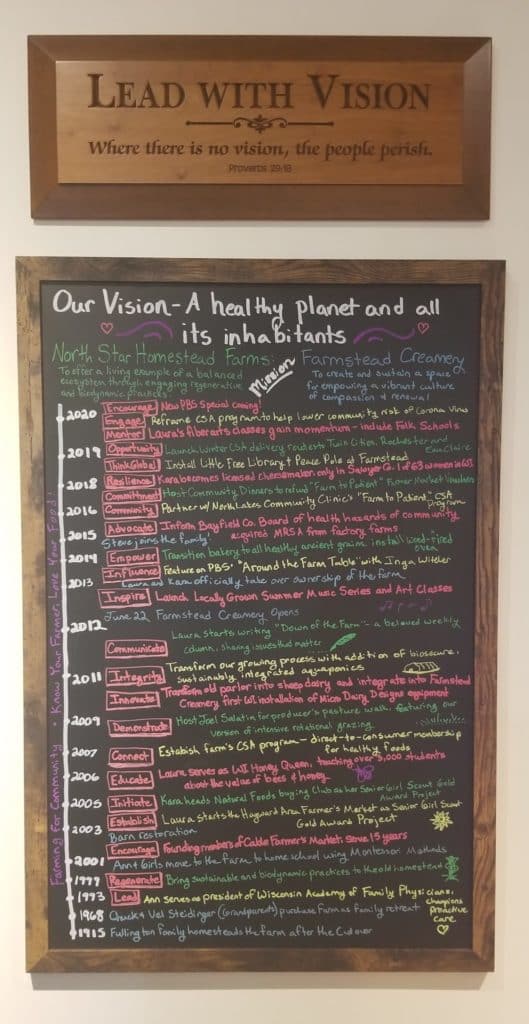 LEAD WITH VISION
Where there is no vision, the people perish.
Proverbs 29:18
Our Vision - A healthy planet and all
its inhabitants
North Star Homestead Farms:
To offer a living example of a balanced
ecosystem through engaging regenerative
and biodynamic practices
Mission
Farmstead Creamery
To create and sustain a space
for empowing a vibrant culture
of compassion & renewal
Farming for Community • Know Your Farmer, Love Your Food!
2020 Encourage New PBS Special coming!
Engage Reframe CSA program to help lower community risk of Corona Virus
Mentor Laura's fiber arts classes gain momentum - include Folk Schools
2019 Opportunity Launch winter CSA delivery routes to Twin Cities, Rochester and
Eau Claire
Think Global Install Little Free Library & Peace Pole at Farmstead
2018 Resilience Kara becomes licensed cheesemaker, only in Sawyer Co. 1 of 63 women in US.
Commitment Host Community Dinners to refund "Farm to Patient" Farmer Market Vouchers
2016 Community Partner w/ NorthLakes Community Clinic's "Farm to Patient" CSA
program
Advocate Inform Bayfield Co. Board of health hazards of community
acquired MRSA from factory farms
2015 Steve joins the family!
2014 Empower Transition bakery to all healthy ancient grains, install wood-fired
oven
Influence Feature on PBS' "Around the Farm Table" with Inga Witcher
2013 Laura and Kara officially take over ownership of the farm
Inspire Launch Locally Grown Summer Music Series and Art Classes
2012 June 22 Farmstead Creamery Opens
Communicate Laura starts writing "Down of the Farm" - a beloved weekly
column, sharing issues that matter
2011 Integrity Transform our growing process with addition of biosecure,
sustainably integrated aquaponics
Innovate Transform old parlor into sheep dairy and integrate into Farmstead
Creamery, first WI installation of Micro Dairy Designs equipment
2009 Demonstrate Host Joel Salatin for producer's pasture walk, featuring our
version of intensive rotational grazing
2007 Connect Establish farm's CSA program - direct-to-consumer membership
for healthy foods
2006 Educate Laura serves as WI Honey Queen, teaching over 3,000 students
about the value of bees & honey
2005 Initiate Kara heads Natural Foods buying Club as her Senior Girl Scout Gold
Award Project
Establish Laura starts the Hayward Area Farmer's Market as Senior Girl Scout
Gold Award Project
2003 Barn restoration
Encourage Founding members of Cable Farmer's Market, serve 15 years
2001 Ann & Girls move to the farm to home school using Montessori Methods
1999 Regenerate Bring sustainable and biodynamic practices to the old homestead
1993 Lead Ann serves as president of Wisconsin Academy of Family Physicians,
champions
Proactive
care
1968 Chuck & Vel Steidinger (Grandparents) purchase farm as family retreat
1915 Fullington family homesteads the farm after the Cutover